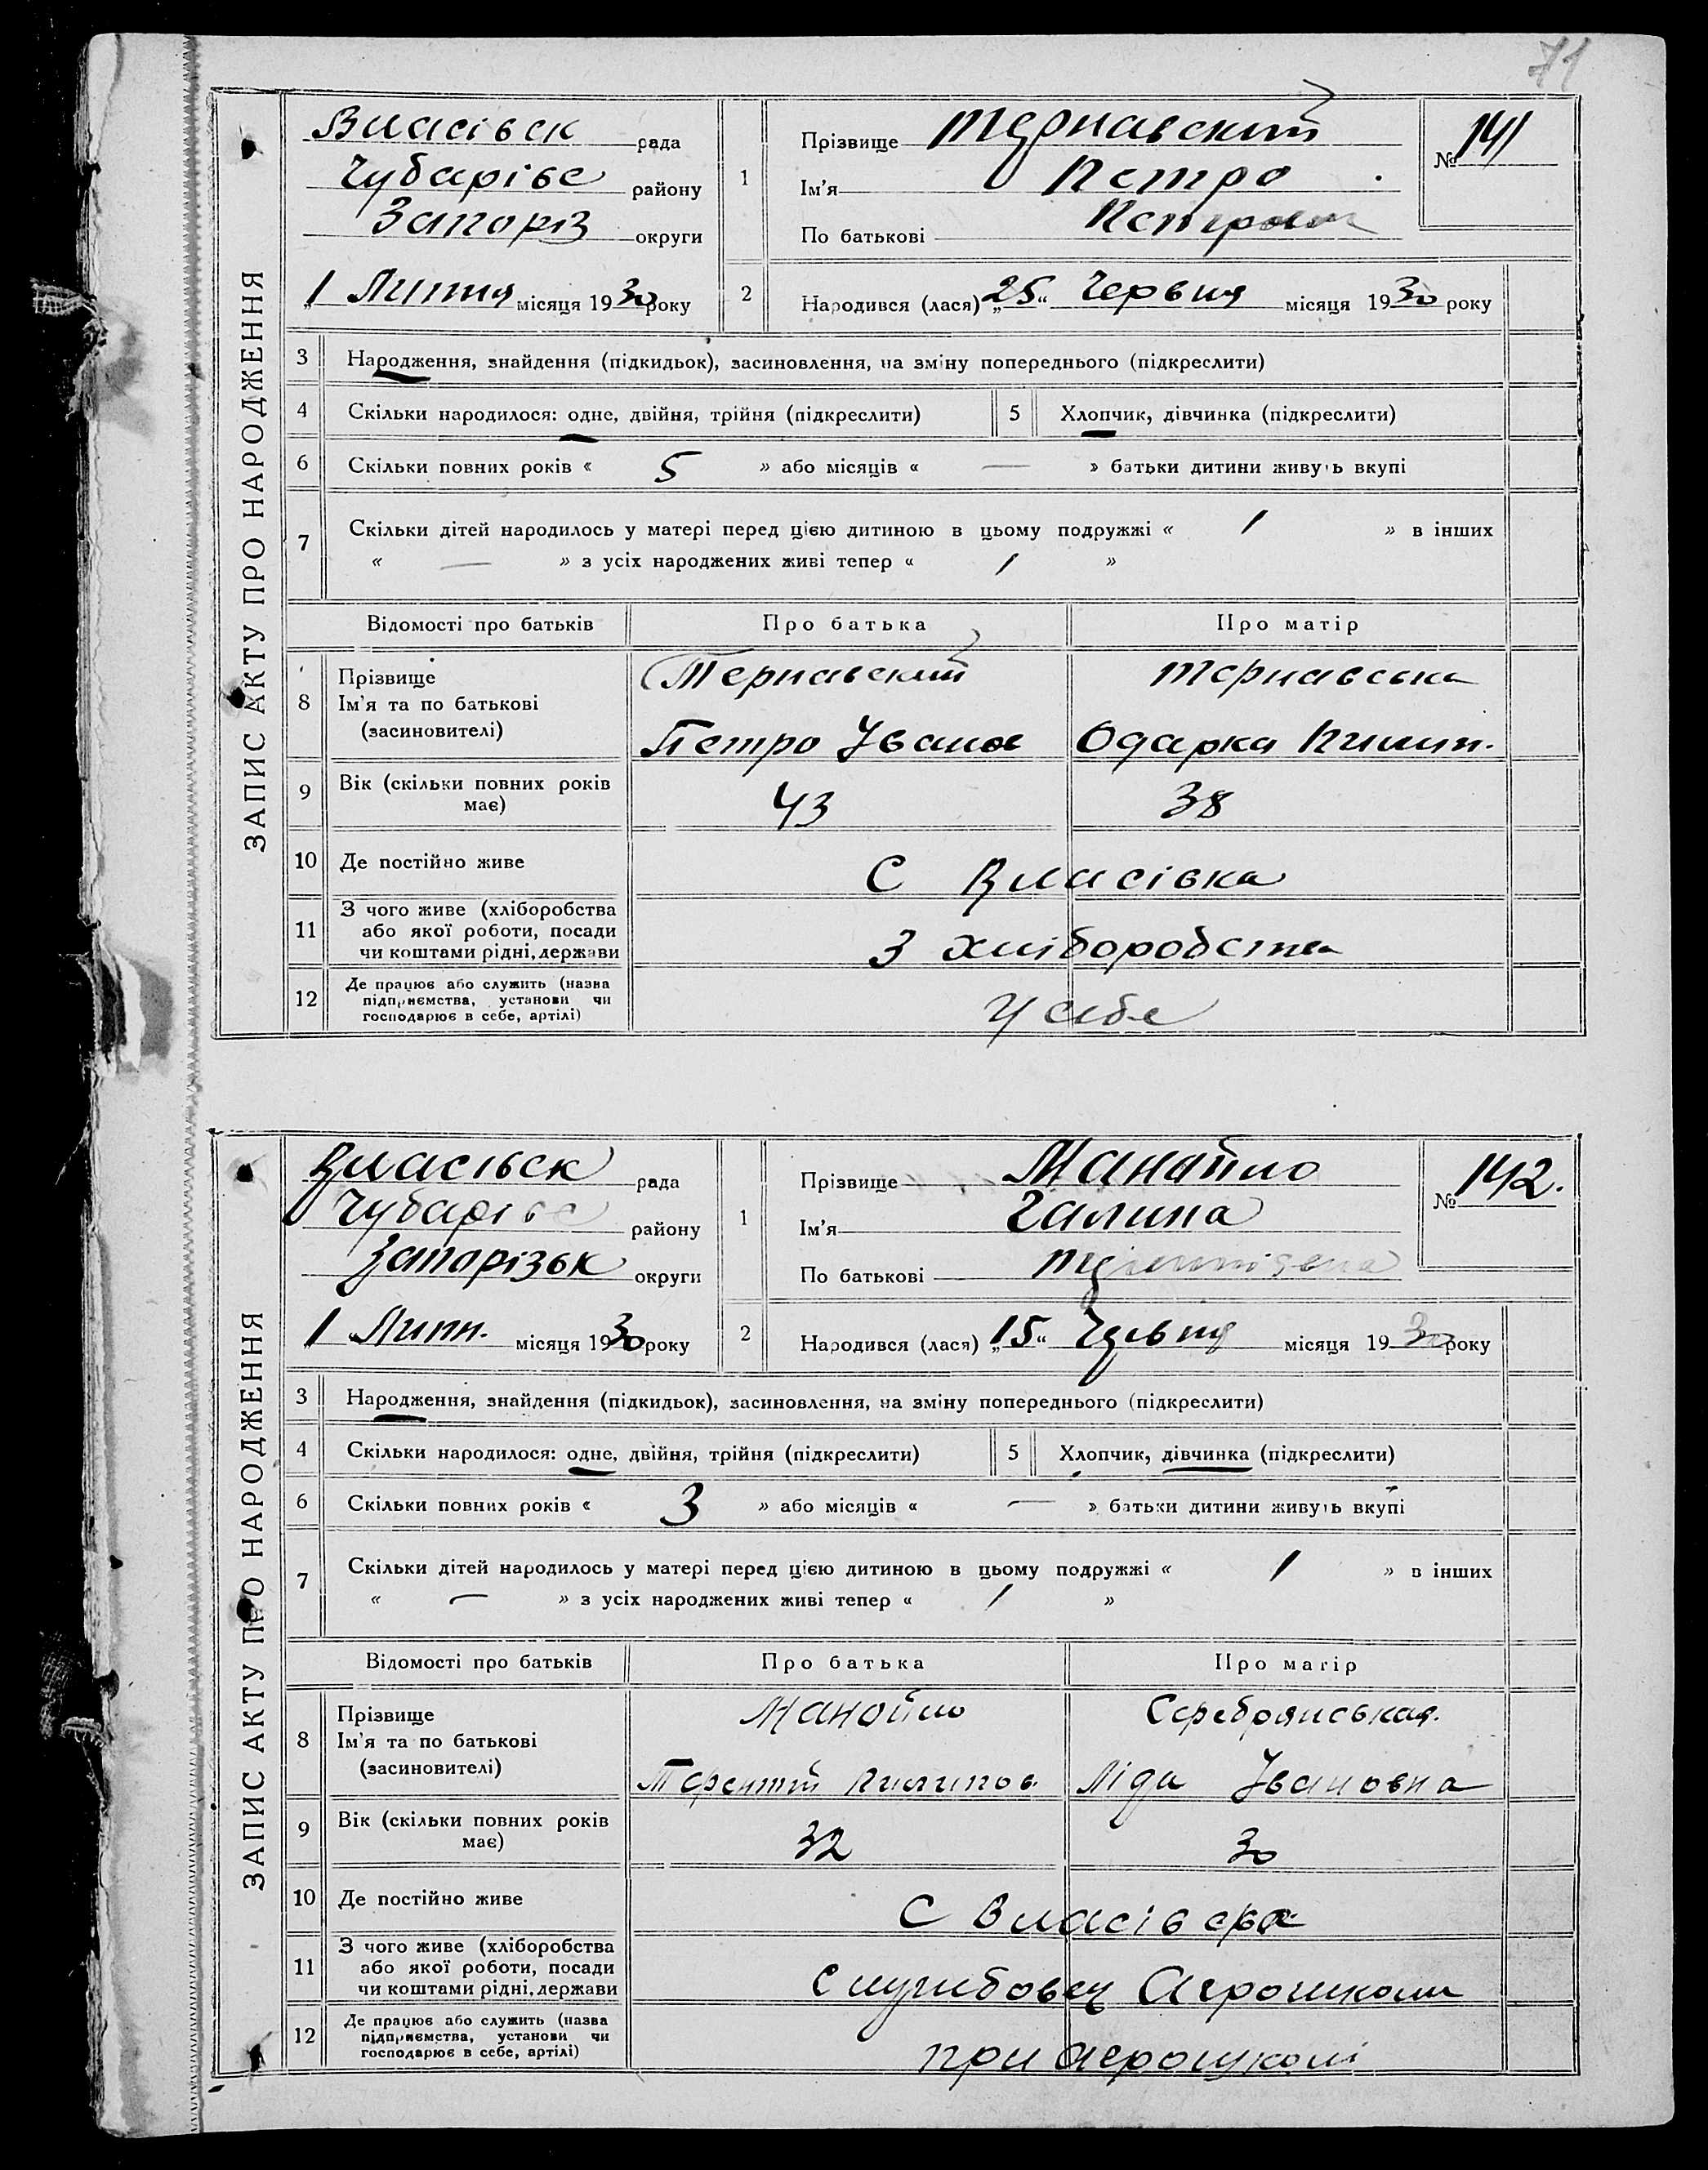 71
ЗАПИС АКТУ ПРО НАРОДЖЕННЯ
Власівськ рада
Чубарівс району
Запоріз округи
„1 Липня місяця 1930 року
1 Прізвище Тернавский
Ім'я Петро
По батькові Петрович
№ 141
2 Народився (лася) „25“ Червня місяця 1930 року
3 Народження, знайдення (підкидьок), засиновлення, на зміну попереднього (підкреслити)
4 Скільки народилося: одне, двійня, трійня (підкреслити) 5 Хлопчик, дівчинка (підкреслити)
6 Скільки повних років « 5 » або місяців « — » батьки дитини живуть вкупі
7 Скільки дітей народилось у матері перед цією дитиною в цьому подружжі « 1 » в інших
« — » з усіх народжених живі тепер « 1 »
Відомості про батьків Про батька Про матір
8 Прізвище Тернавский Тернавська
Ім'я та по батькові
(засновителі) Петро Іванов Одарка Пилип.
9 Вік (скільки повних років має) 43 38
10 Де постійно живе С Власівка
11 З чого живе (хліборобства
або якої роботи, посади З хліборобства
чи коштами рідні, держави
12 Де працює або служить (назва
підприємства, установи чи У себе
господарює в себе, артілі)
ЗАПИС АКТУ ПРО НАРОДЖЕННЯ
Власівськ рада
Чубарівс району
Запорізьк округи
1 Липн. місяця 1930 року
1 Прізвище Манойло
Ім'я Галина
По батькові
№ 142.
2 Народився (лася) „15“ Червня місяця 1930 року
3 Народження, знайдення (підкидьок), засиновлення, на зміну попереднього (підкреслити)
4 Скільки народилося: одне, двійня, трійня (підкреслити) 5 Хлопчик, дівчинка (підкреслити)
6 Скільки повних років « 3 » або місяців « — » батьки дитини живуть вкупі
7 Скільки дітей народилось у матері перед цією дитиною в цьому подружжі « 1 » в інших
« — » з усіх народжених живі тепер « 1 »
Відомості про батьків Про батька Про матір
8 Прізвище Манойло Серебрянськая.
Ім'я та по батькові
(засиновителі) Терентий Пилипов. Ліда Івановна
9 Вік (скільки повних років має) 32 30
10 Де постійно живе С Власівка
11 З чого живе (хліборобства
або якої роботи, посади Службовец Агрошколи
чи коштами рідні, держави
12 Де працює або служить (назва
підприємства, установи чи
господарює в себе, артілі) при Агрошколі